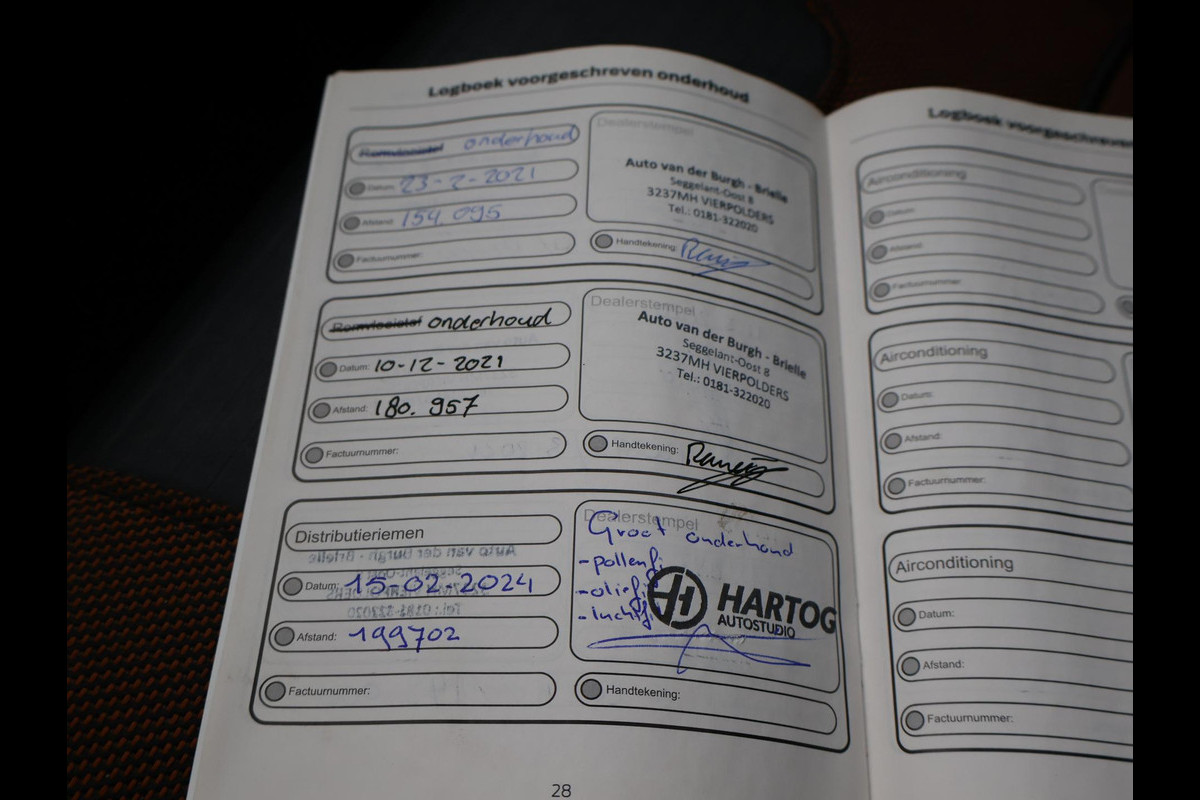 Logboek voorgeschreven onderhoud
Remvloeistof onderhoud
Datum: 23-2-2021
Afstand: 154.095
Factuurnummer:
Dealerstempel
Auto van der Burgh - Brielle
Seggelant-Oost 8
3237MH VIERPOLDERS
Tel.: 0181-322020
Handtekening:
Remvloeistof onderhoud
Datum: 10-12-2021
Afstand: 180.957
Factuurnummer:
Dealerstempel
Auto van der Burgh - Brielle
Seggelant-Oost 8
3237MH VIERPOLDERS
Tel.: 0181-322020
Handtekening:
Distributieriemen
Datum: 15-02-2024
Afstand: 199702
Factuurnummer:
Dealerstempel
Groot onderhoud
-pollenfi
-oliefi
-luchtfi
HARTOG
AUTOSTUDIO
Handtekening:
28
Logboek voorgeschreven
Airconditioning
Datum:
Afstand:
Factuurnummer:
Airconditioning
Datum:
Afstand:
Factuurnummer:
Airconditioning
Datum:
Afstand:
Factuurnummer: